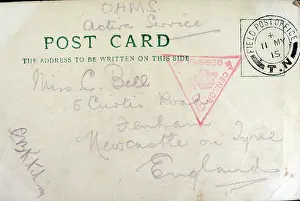 O.H.M.S.
Active Service
POST CARD
THE ADDRESS TO BE WRITTEN ON THIS SIDE
FIELD POST OFFICE
11 MY
15
T.N
PASSED
CENSOR
Miss C. Bell
5 Curtis Road
Fenham
Newcastle on Tyne
England